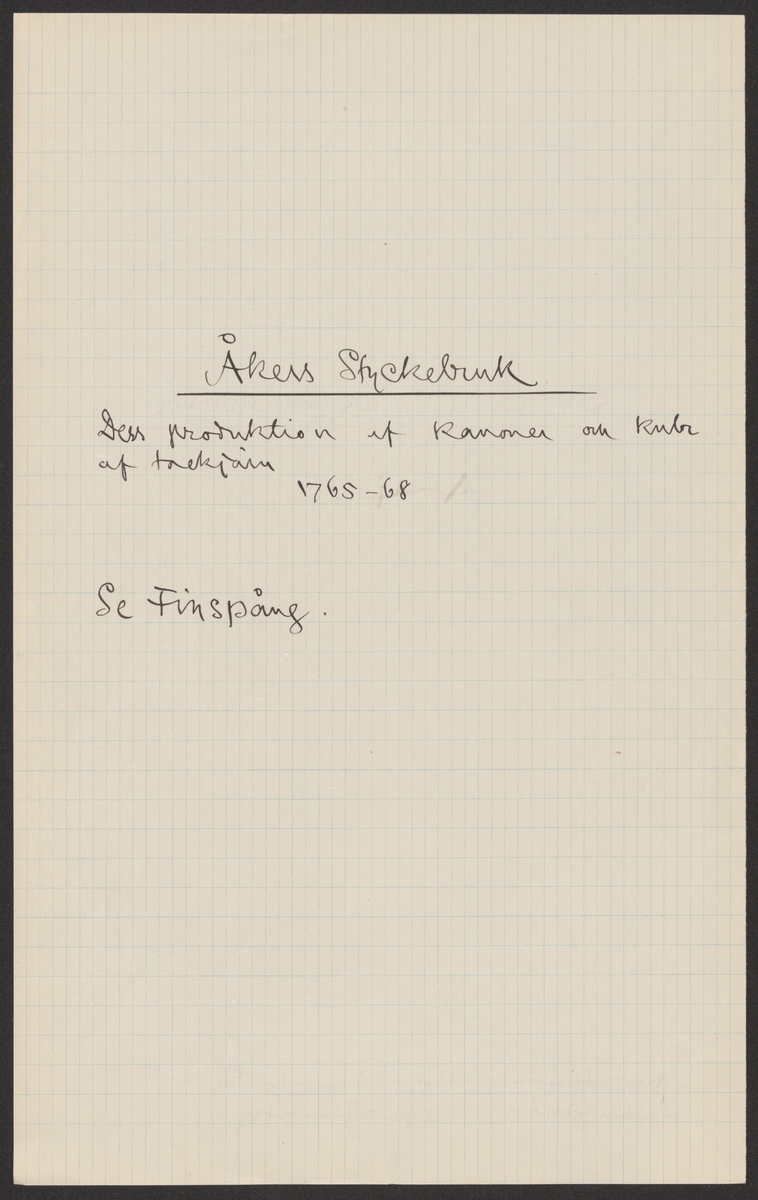 Åkers Styckebruk
Dess produktion af kanoner och kulor
af tackjärn
1765-68
Se Finspång.